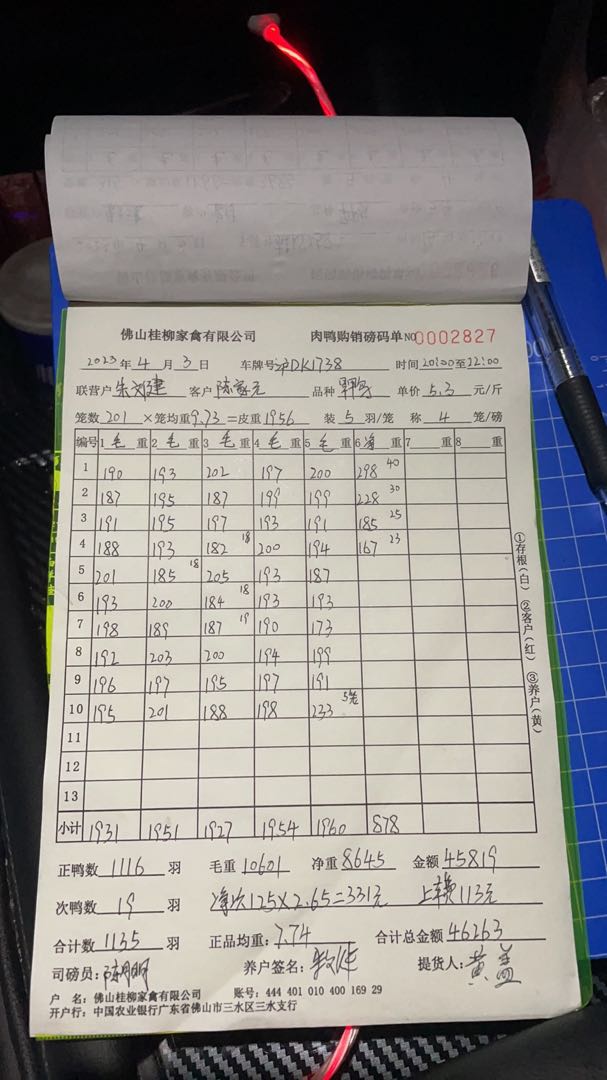 佛山桂柳家禽有限公司 肉鸭购销磅码单 NO 0002827
2023年 4 月 3 日 车牌号 沪DK1738 时间 20:00至22:00
联营户 客户 品种 单价 5.3 元/斤
笼数 201 ×笼均重 9.73 =皮重 1956 装 5 羽/笼 称 4 笼/磅
编号 1 毛 重 2 毛 重 3 毛 重 4 毛 重 5 毛 重 6 净 重 7 重 8 重
1 190 193 202 197 200 298 40
2 187 195 187 199 199 228 30
3 191 195 197 193 191 185 25
4 188 193 182 18 200 194 167 23
5 201 185 18 205 193 187
6 193 200 184 18 193 193
7 198 189 187 19 190 173
8 192 203 200 194 199
9 196 197 195 197 191
10 195 201 188 198 233 5笼
11
12
13
小计 1931 1951 1927 1954 1960 878
正鸭数 1116 羽 毛重 10601 净重 8645 金额 45819
次鸭数 19 羽 净次125×2.65=331元 上车费113元
合计数 1135 羽 正品均重: 7.74 合计总金额 46263
司磅员: 养户签名: 提货人: 黄盖
户 名: 佛山桂柳家禽有限公司 账号: 444 401 010 400 169 29
开户行: 中国农业银行广东省佛山市三水区三水支行
①存根(白) ②客户(红) ③养户(黄)